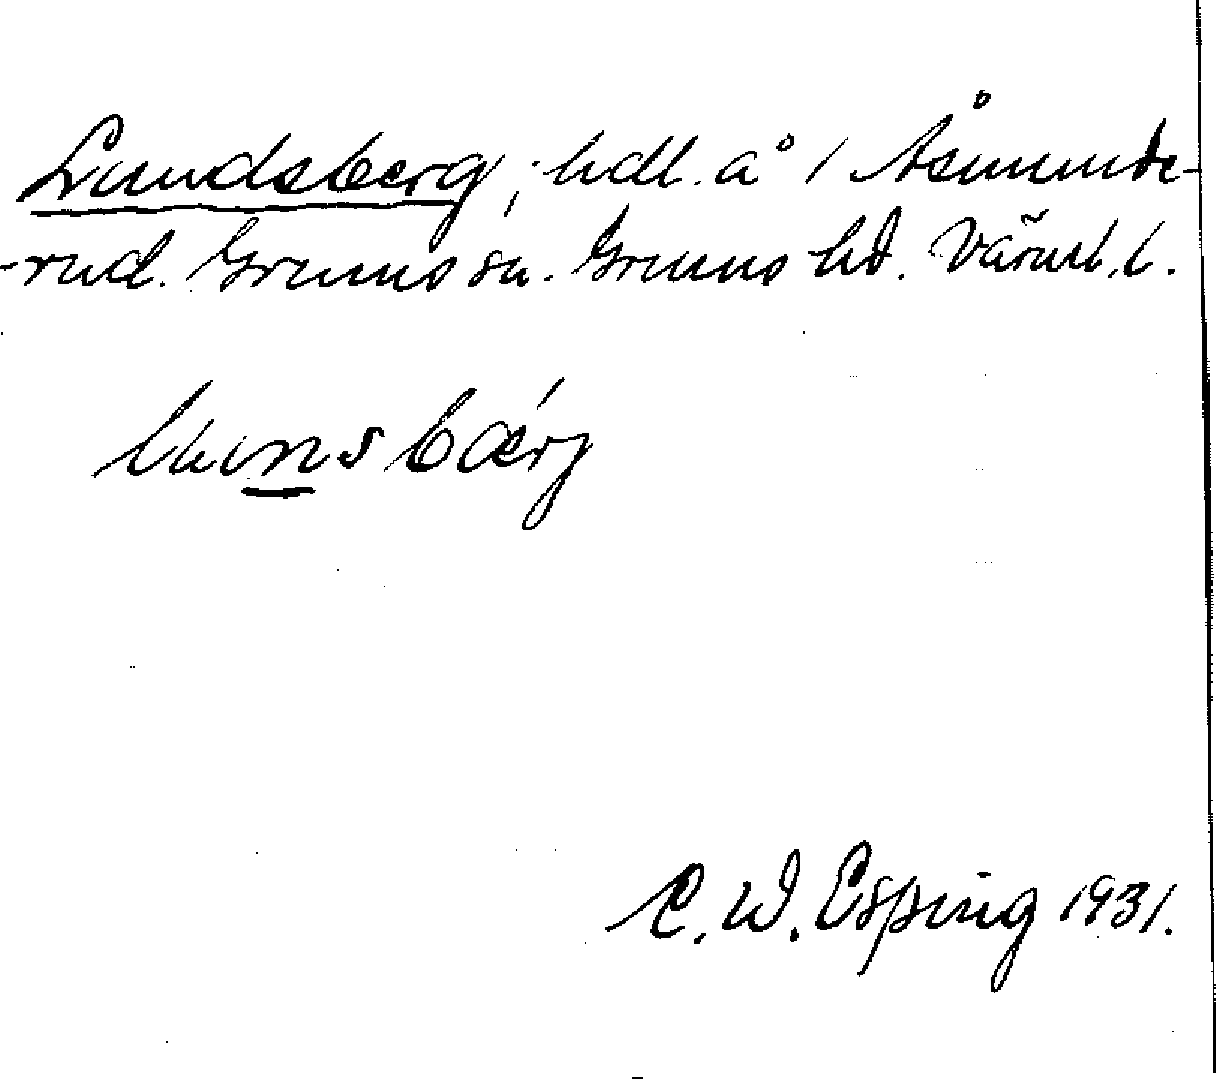 Lundsberg; hdl. å 1 Åsmunde-
-rud. Grums sn. Grums hd. Värml. l.
lunsbærj
C. W. Esping 1931.